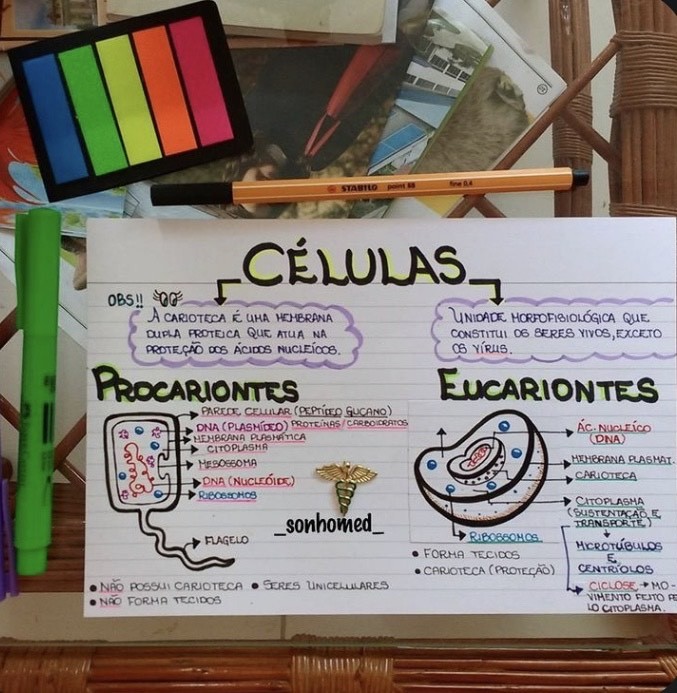 STABILO point 88 fine 0.4
CÉLULAS
OBS!!
A CARIOTECA É UMA MEMBRANA
DUPLA PROTEICA QUE ATUA NA
PROTEÇÃO DOS ÁCIDOS NUCLEÍCOS.
UNIDADE MORFOFISIOLÓGICA QUE
CONSTITUI OS SERES VIVOS, EXCETO
OS VÍRUS.
PROCARIONTES
PAREDE CELULAR (PEPTÍDEO GLICANO)
DNA (PLASMÍDEO) PROTEÍNAS/CARBOIDRATOS
MEMBRANA PLASMÁTICA
CITOPLASMA
MESOSSOMA
DNA (NUCLEÓIDE)
RIBOSSOMOS
FLAGELO
• NÃO POSSUI CARIOTECA • SERES UNICELULARES
• NÃO FORMA TECIDOS
_sonhomed_
EUCARIONTES
ÁC. NUCLEÍCO
(DNA)
MEMBRANA PLASMAT.
CARIOTECA
CITOPLASMA
(SUSTENTAÇÃO E
TRANSPORTE)
MICROTÚBULOS
E
CENTRÍOLOS
CICLOSE → MO-
VIMENTO FEITO PE
LO CITOPLASMA.
RIBOSSOMOS
• FORMA TECIDOS
• CARIOTECA (PROTEÇÃO)